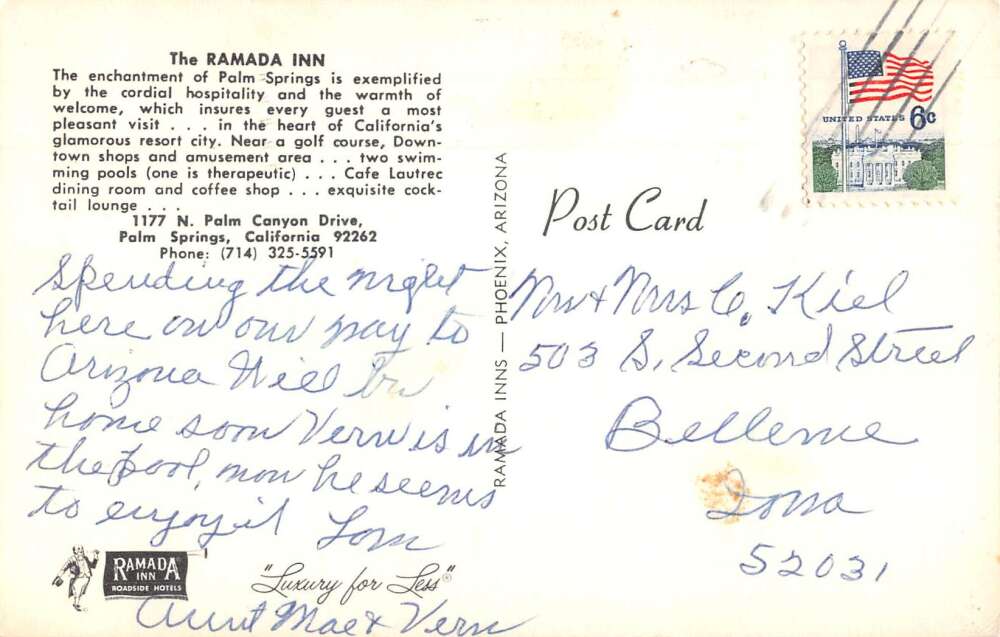 The RAMADA INN
The enchantment of Palm Springs is exemplified
by the cordial hospitality and the warmth of
welcome, which insures every guest a most
pleasant visit . . . in the heart of California's
glamorous resort city. Near a golf course, Down-
town shops and amusement area . . . two swim-
ming pools (one is therapeutic) . . . Cafe Lautrec
dining room and coffee shop . . . exquisite cock-
tail lounge . . .
1177 N. Palm Canyon Drive,
Palm Springs, California 92262
Phone: (714) 325-5591
Spending the night
here on our way to
Arizona Will be
home soon Vern is in
the pool, now he seems
to enjoy it Love
Aunt Mae & Vern
RAMADA INN
ROADSIDE HOTELS
"Luxury for Less"®
RAMADA INNS — PHOENIX, ARIZONA
Post Card
UNITED STATES 6c
Mr & Mrs C. Kiel
503 S. Second Street
Bellevue
Iowa
52031